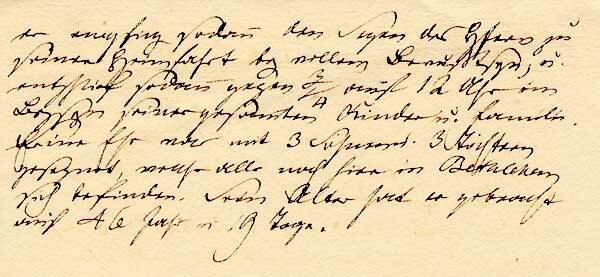 er empfing sodann den Segen des Herrn zu
seiner Heimfahrt bey vollem Bewußtseyn, u.
entschlief sodann gegen 3/4 auf 12 Uhr im
Beyseyn seiner gesamten Kinder u. Familie.
Seine Ehe war mit 3 Söhnen u. 3 Töchtern
gesegnet, welche alle noch hier in Bethlehem
sich befinden. Sein Alter hat er gebracht
auf 46 Jahr u. 19 Tage.